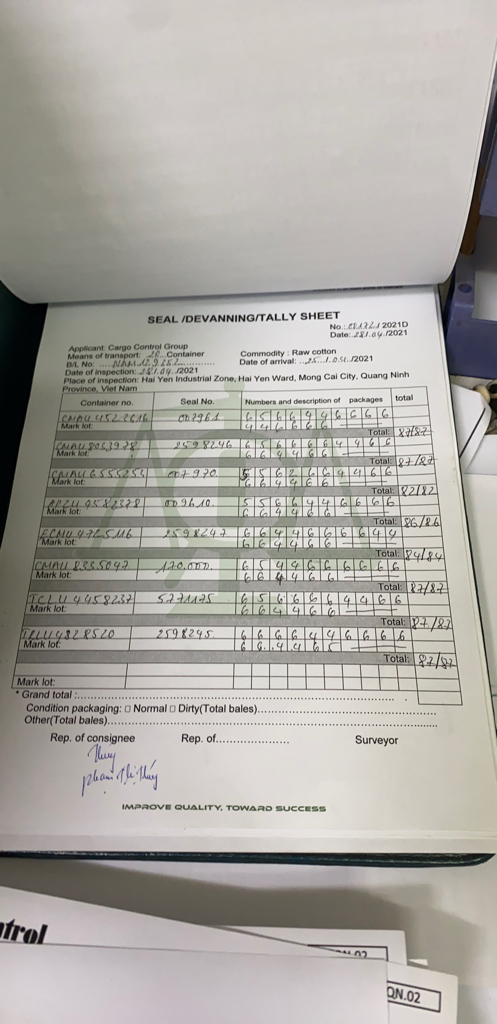 SEAL /DEVANNING/TALLY SHEET
No.: 2021D
Date: 28/.04./2021
Applicant: Cargo Control Group
Means of transport: 20 Container
Commodity : Raw cotton
B/L No:
Date of arrival: 25./.04./2021
Date of inspection: 28/.04./2021
Place of inspection: Hai Yen Industrial Zone, Hai Yen Ward, Mong Cai City, Quang Ninh
Province, Viet Nam
Container no. Seal No. Numbers and description of packages total
CMAU 4522616 007961 6 5 6 6 4 4 6 6 6 6
Mark lot: 4 4 6 6 6 6
Total: 87/87
CMAU 8053978 2598246 6 5 6 6 6 6 4 4 6 6
Mark lot: 6 6 4 4 6 6
Total: 87/87
CMAU 6555253 007970 5 5 6 2 6 6 4 4 6 6
Mark lot: 6 6 4 4 6 6
Total: 82/82
APZU 4582378 009610. 5 5 6 6 4 4 6 6 6 6
Mark lot: 6 6 4 4 6 6
Total: 86/86
ECMU 4765116 2598247 6 6 4 4 6 6 6 6 4 4
Mark lot: 6 6 4 4 6 6
Total: 84/84
CMAU 8335047 120.000. 6 5 4 4 6 6 6 6 6 6
Mark lot: 6 6 4 4 6 6
Total: 87/87
TCLU 4458237 5771175 6 5 6 6 6 6 4 4 6 6
Mark lot: 6 6 4 4 6 6
Total: 87/87
TRLU 4828520 2598245. 6 6 6 6 4 4 6 6 6 6
Mark lot: 6 6 4 4 6 5
Total: 87/87
Mark lot:
* Grand total :
Condition packaging: □ Normal □ Dirty(Total bales)
Other(Total bales)
Rep. of consignee Rep. of Surveyor
Thuy
phạm Thị Thúy
IMPROVE QUALITY, TOWARD SUCCESS
ntrol
QN.02